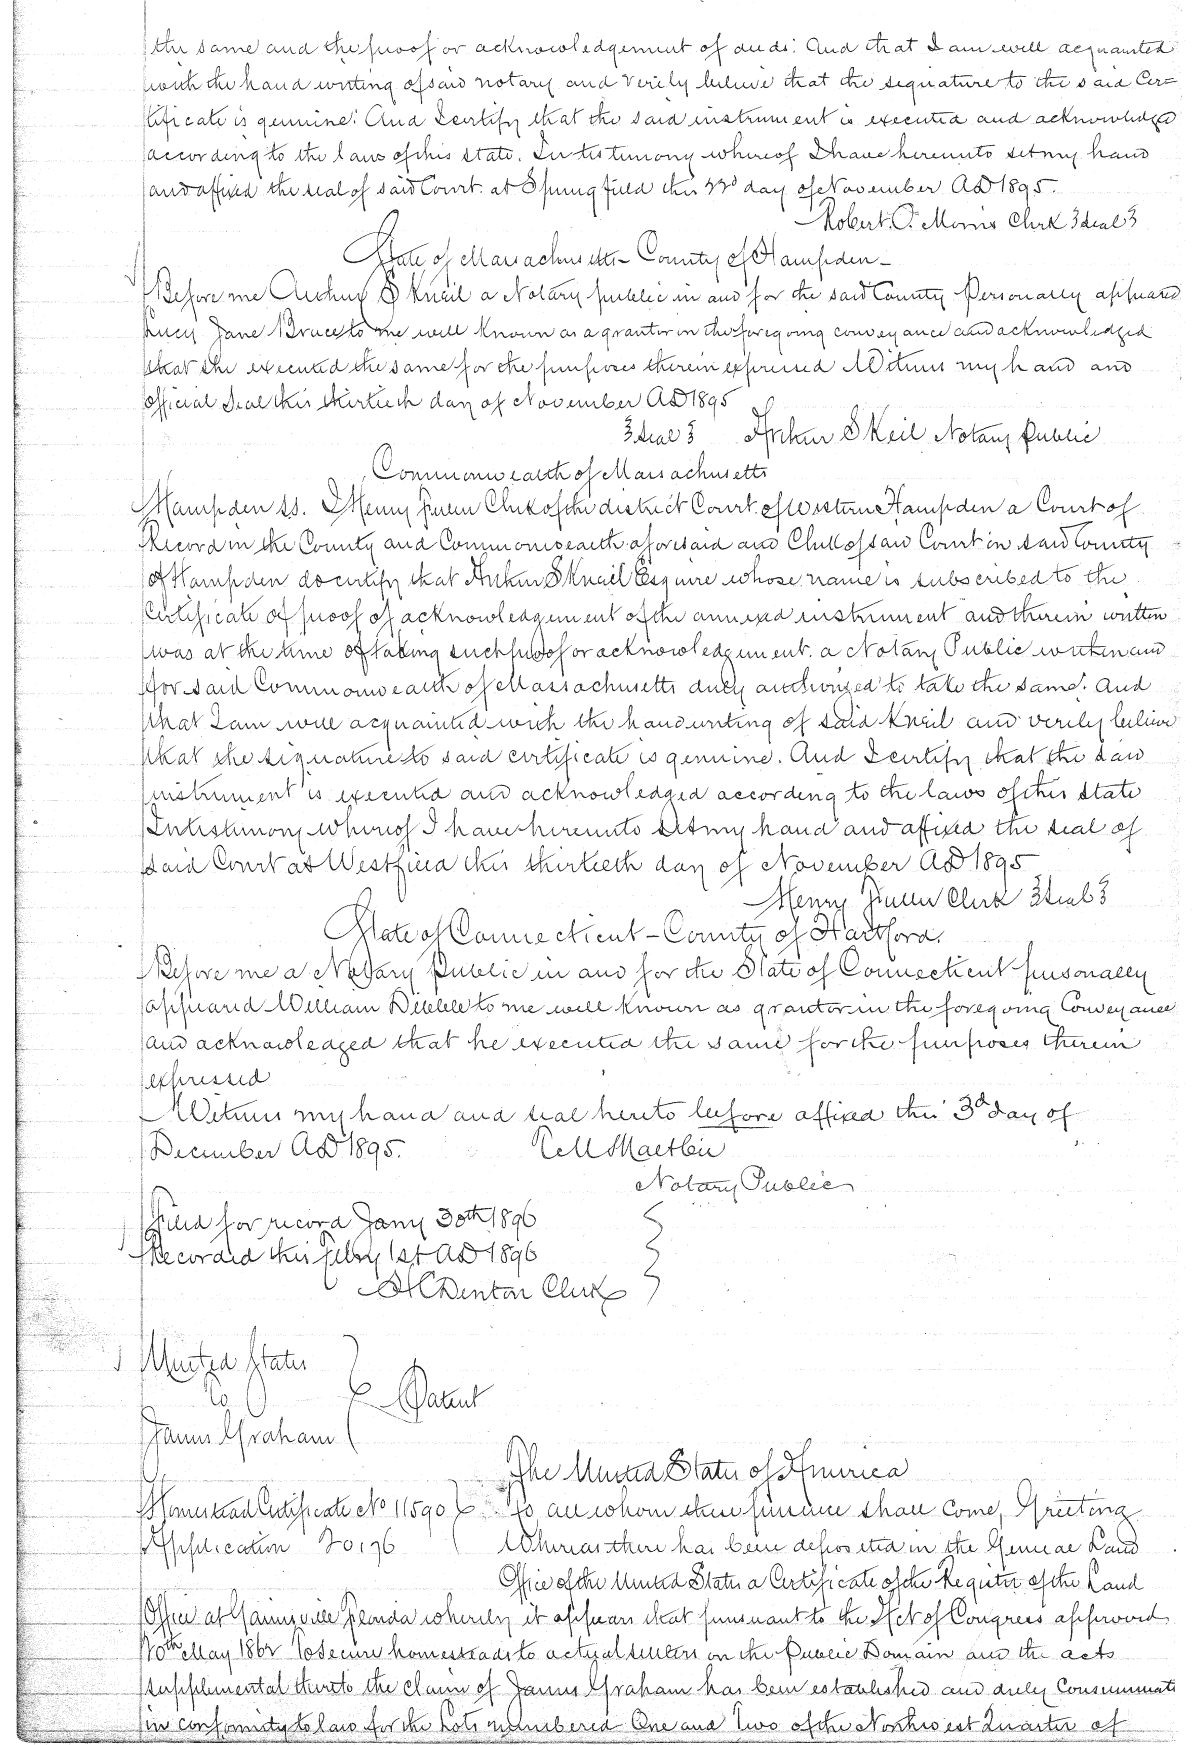 the same and the proof or acknowledgement of deeds. And that I am well acquainted
with the hand writing of said notary and verily believe that the signature to the said Cer=
tificate is genuine. And I certify that the said instrument is executed and acknowledged
according to the laws of this state. In testimony whereof I have hereunto set my hand
and affixed the seal of said Court at Springfield this 22d day of November AD 1895.
Robert O. Morris Clerk {seal}
State of Massachusetts - County of Hampden -
Before me Arthur S Kneil a Notary public in and for the said County Personally appeared
Lucy Jane Brace to me well known as a grantor in the foregoing conveyance and acknowledged
that she executed the same for the purposes therein expressed Witness my hand and
official Seal this thirtieth day of November AD 1895
{Seal} Arthur S Keil Notary Public
Commonwealth of Massachusetts
Hampden ss. I Henry Fuller Clerk of the district Court of Western Hampden a Court of
Record in the County and Commonwealth aforesaid and Clerk of said Court in said County
of Hampden do certify that Arthur S Kneil Esquire whose name is subscribed to the
Certificate of proof of acknowledgement of the annexed instrument and therein written
was at the time of taking such proof or acknowledgement a Notary Public within and
for said Commonwealth of Massachusetts duly authorized to take the same. And
that I am well acquainted with the handwriting of said Kneil and verily believe
that the signature to said certificate is genuine. And I certify that the said
instrument is executed and acknowledged according to the laws of this state
In testimony whereof I have hereunto set my hand and affixed the seal of
said Court at Westfield this thirtieth day of November AD 1895
Henry Fuller Clerk {Seal}
State of Connecticut - County of Hartford.
Before me a Notary Public in and for the State of Connecticut personally
appeared William Dibble to me well known as grantor in the foregoing Conveyance
and acknowledged that he executed the same for the purposes therein
expressed
Witness my hand and seal hereto before affixed this 3d day of
December AD 1895.
Notary Public
Filed for record Jany 30th 1896
Recorded this Feby 1st AD 1896
H C Denton Clerk
United States
To
Patent
James Graham
The United States of America
Homestead Certificate No 11590 To all whom these presence shall come, Greeting
Application 20176 Whereas there has been deposited in the General Land
Office of the United States a Certificate of the Register of the Land
Office at Gainesville Florida whereby it appears that pursuant to the Act of Congress approved
20th May 1862 To secure homesteads to actual settlers on the Public Domain and the acts
supplemental thereto the claim of James Graham has been established and duly Consummate
in conformity to law for the Lots numbered One and Two of the Northwest Quarter of